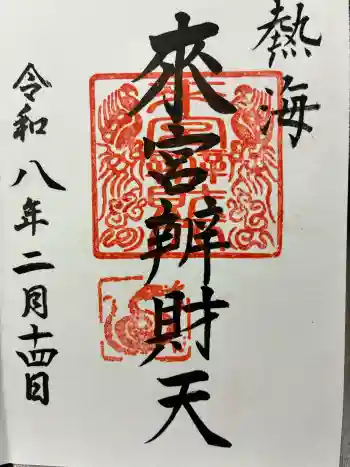 熱海
來宮辨財天
令和八年二月十四日